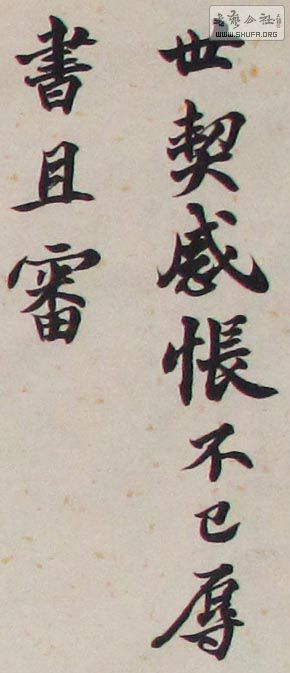 世契感悵不已辱
書且審
WWW.SHUFA.ORG